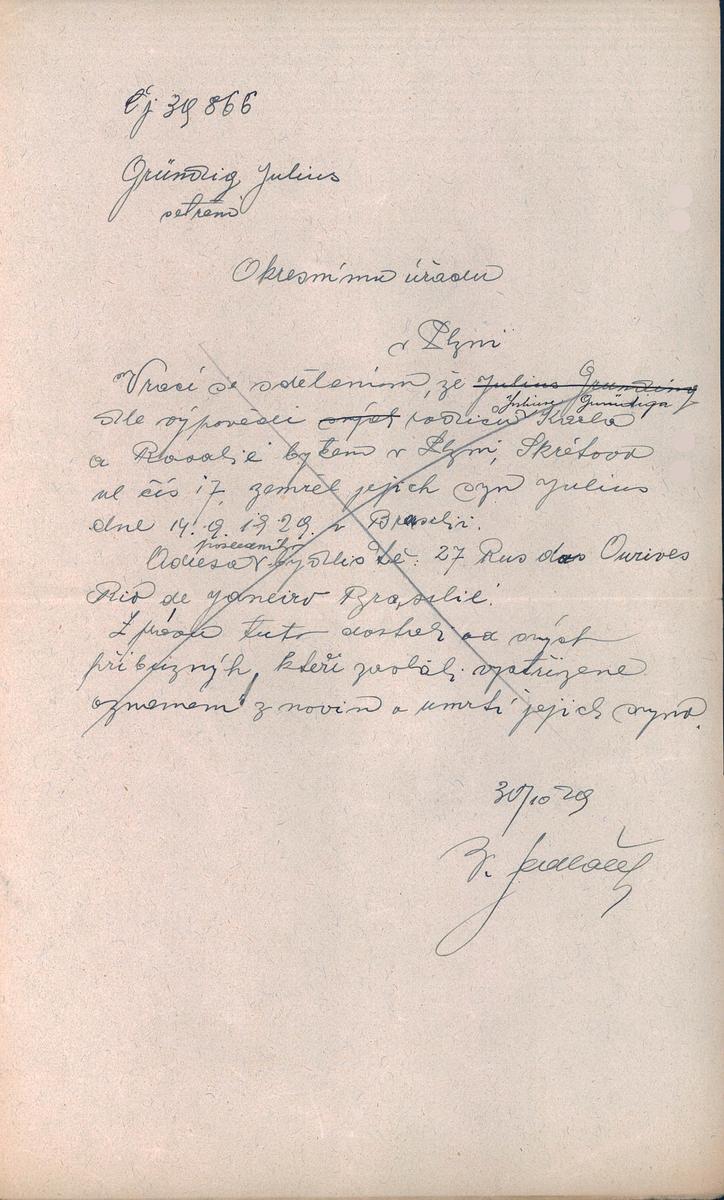 Čj 39 866
Gründig Julius
šetření
Okresnímu úřadu
v Plzni
Vrací se sdělením, že Julius Grunding
Julius Gründiga
dle výpovědi svých rodičů Karla
a Rosalie bytem v Plzni, Skrétova
ul čís 17, zemřel jejich syn Julius
dne 14. 9. 1929. v Brasilii.
posledního
Adresa bydliště: 27 Rua das Ourives
Rio de Janeiro Brasilie.
Zprávu tuto dostali od svých
příbuzných, kteří zaslali vystřižene
oznamení z novin o umrtí jejich syna.
30/10 29
Sedláček